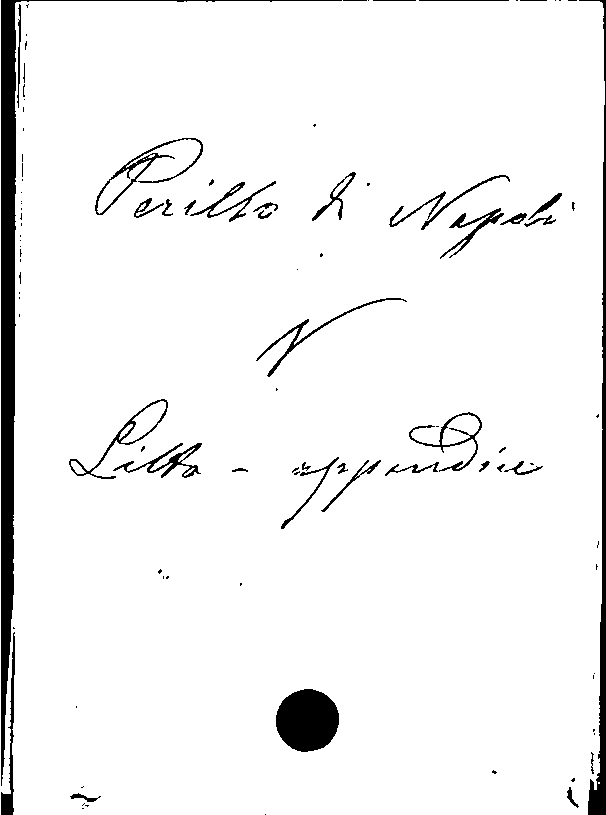 Perillo di Napoli
V
Litta - appendice